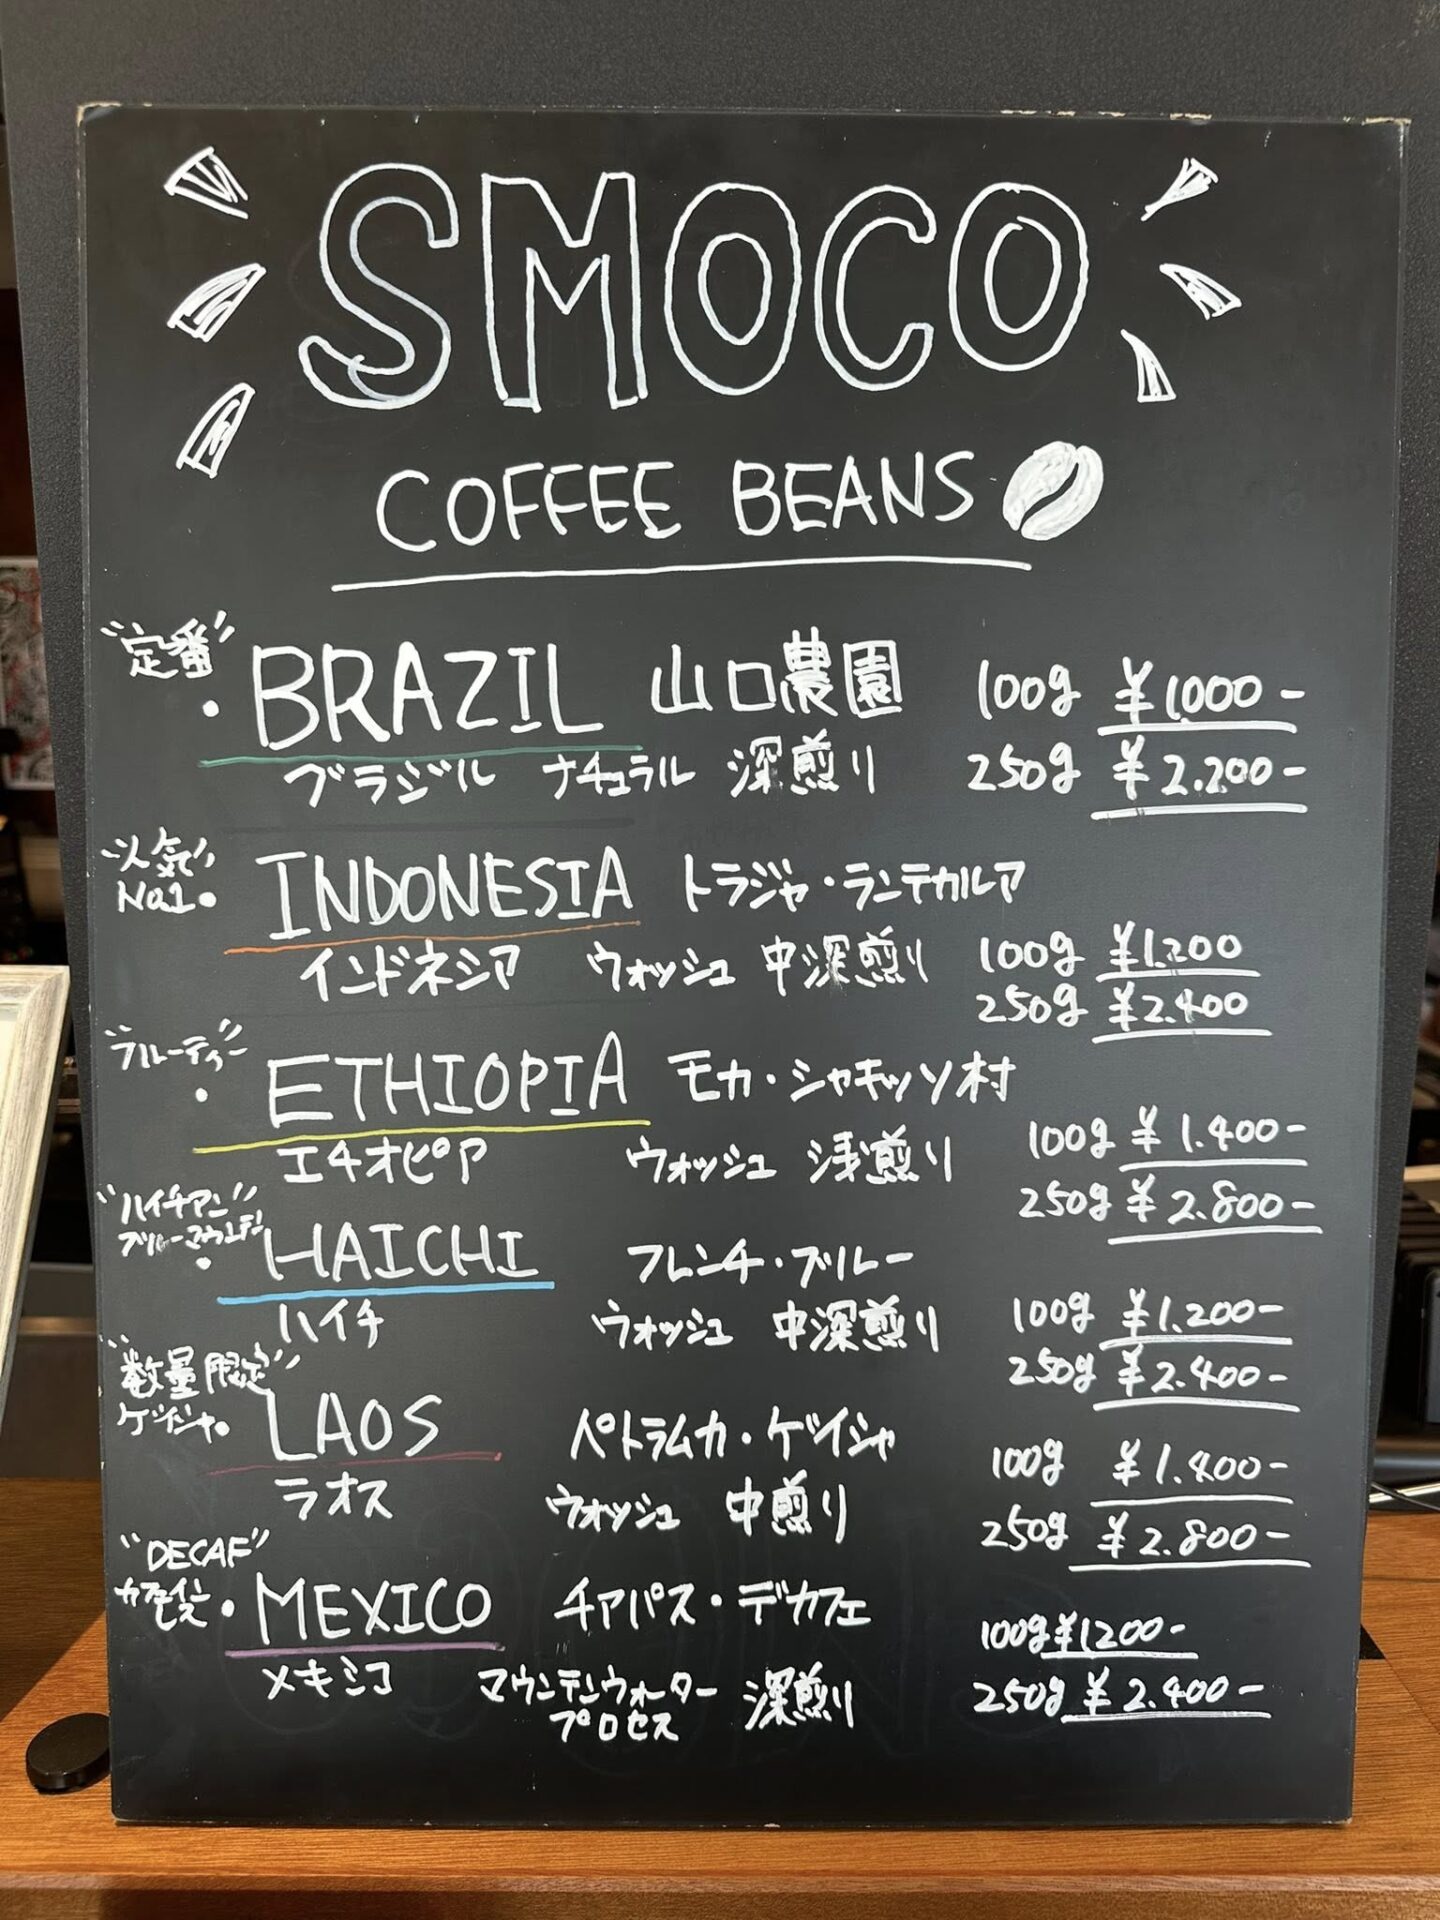 SMOCO
COFFEE BEANS
"定番"
・BRAZIL 山口農園 100g ¥1.000-
ブラジル ナチュラル 深煎り 250g ¥2.200-
"人気"
No.1・
INDONESIA トラジャ・ランテカルア
インドネシア ウォッシュ 中深煎り 100g ¥1.200
250g ¥2.400
"フルーティー"
・ETHIOPIA モカ・シャキッソ村
エチオピア ウォッシュ 浅煎り 100g ¥1.400-
250g ¥2.800-
"ハイチアン
ブルーマウンテン"
・HAICHI フレンチ・ブルー
ハイチ ウォッシュ 中深煎り 100g ¥1.200-
250g ¥2.400-
"数量限定"
ゲイシャ・
LAOS ペトラムカ・ゲイシャ 100g ¥1.400-
ラオス ウォッシュ 中煎り 250g ¥2.800-
"DECAF"
カフェイン
レス・
MEXICO チアパス・デカフェ 100g ¥1200-
メキシコ マウンテンウォーター
プロセス 深煎り 250g ¥2.400-